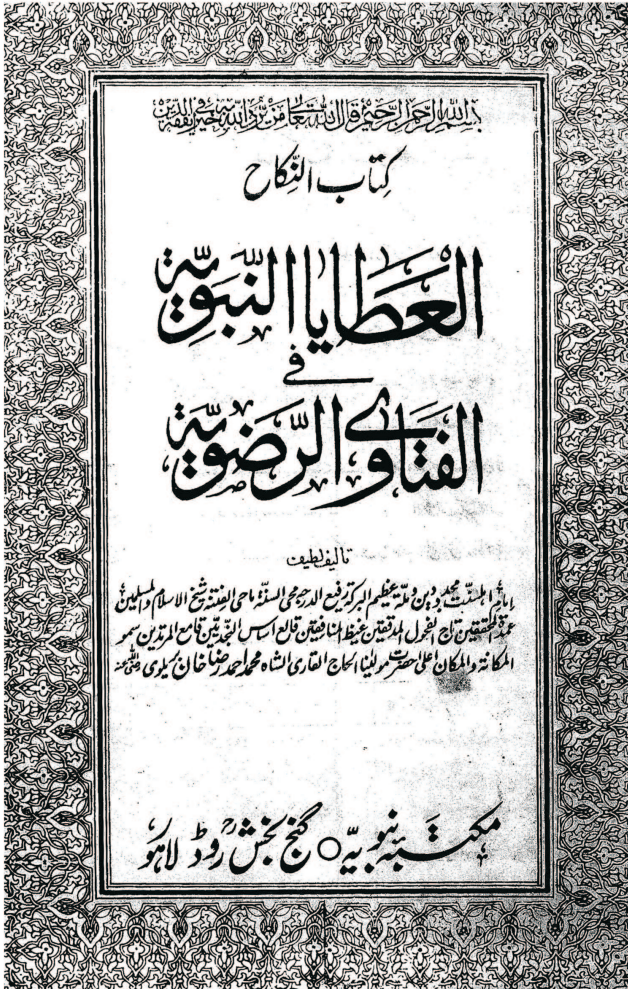 بسم اللہ الرحمن الرحیم قال اللہ تعالیٰ من یرد اللہ بہ خیرا یفقہہ فی الدین
کتاب النکاح
العَطَایَا النَّبَوِیَّۃ
فی
الفَتَاوٰی الرَّضَوِیَّۃ
تالیف لطیف
امامِ اہلسنت مجدد دین و ملۃ عظیم البرکۃ رفیع الدرجۃ محی السنۃ ماحی الفتنۃ شیخ الاسلام والمسلمین
عمدۃ المحققین تاج الفحول المدققین غیظ المنافقین قالع اساس النجدیین قامع المرتدین سمو
المکانۃ والمکان اعلیٰ حضرت مولینا الحاج القاری الشاہ محمد احمد رضا خان بریلوی رضی اللہ عنہ
مکتبہ نبویہ ○ گنج بخش روڈ لاہور